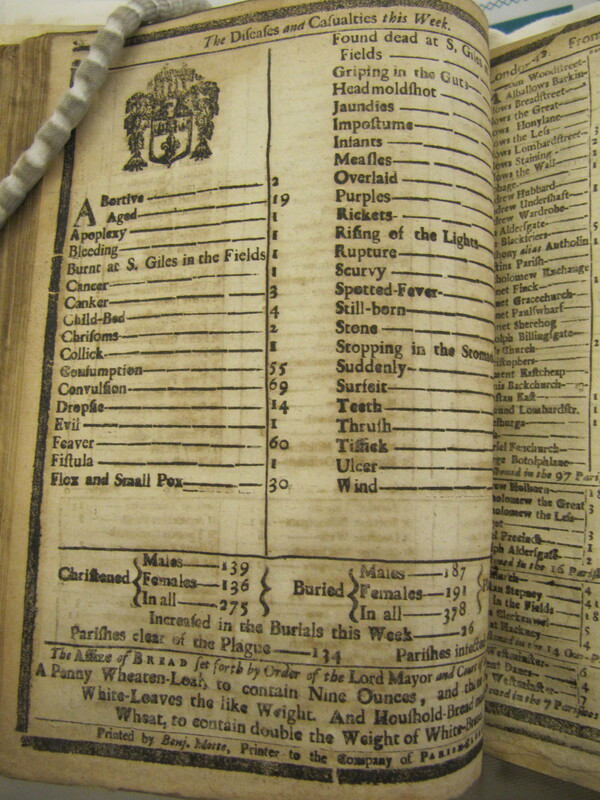 The Diseases and Casualties this Week.
ABortive 2
Aged 19
Apoplexy 1
Bleeding 1
Burnt at S. Giles in the Fields 1
Cancer 1
Canker 3
Child-Bed 4
Chrisoms 2
Collick 1
Consumption 55
Convulsion 69
Dropsie 14
Evil 1
Feaver 60
Fistula 1
Flox and Small Pox 30
Found dead at S. Giles
Fields
Griping in the Guts
Headmoldshot
Jaundies
Impostume
Infants
Measles
Overlaid
Purples
Rickets
Rising of the Lights
Rupture
Scurvy
Spotted-Fever
Still-born
Stone
Stopping in the Stomac
Suddenly
Surfeit
Teeth
Thrush
Tissick
Ulcer
Wind
Christened { Males 139 Females 136 In all 275 }
Buried { Males 187 Females 191 In all 378 }
Increased in the Burials this Week 26
Parishes clear of the Plague 134 Parishes infected
The Assize of BREAD set forth by Order of the Lord Mayor and Court of
A Penny Wheaten-Loaf to contain Nine Ounces, and three
White-Loaves the like Weight. And Houshold-Bread
Wheat, to contain double the Weight of White-Bread
Printed by Benj. Motte, Printer to the Company of Parish
London 42 From
Woodstreet
Alhallows Barkin
lows Breadstreet
lows the Great
lows Honylane
lows the Less
lows Lombardstreet
lows Staining
lows the Wall
drew Hubbard
drew Undershaft
drew Wardrobe
Aldersgate
Blackfriers
thony alias Antholin
tins Parish
tholomew Exchange
net Finck
net Gracechurch
net Paulswharf
net Sherehog
olph Billingsgate
Church
istophers
ment Eastcheap
nis Backchurch
stan East
mund Lombardstr.
elburga
riel Fenchurch
rge Botolphlane
in the 97 Pari
rew Holborn
tholomew the Great 3
tholomew the Less
Precinct
lph Aldersgate
in the 16 Parishes
Stepney
in the Fields
Clerkenwel
at Hackney
ent Danes
Westminster
in the 7 Parishes